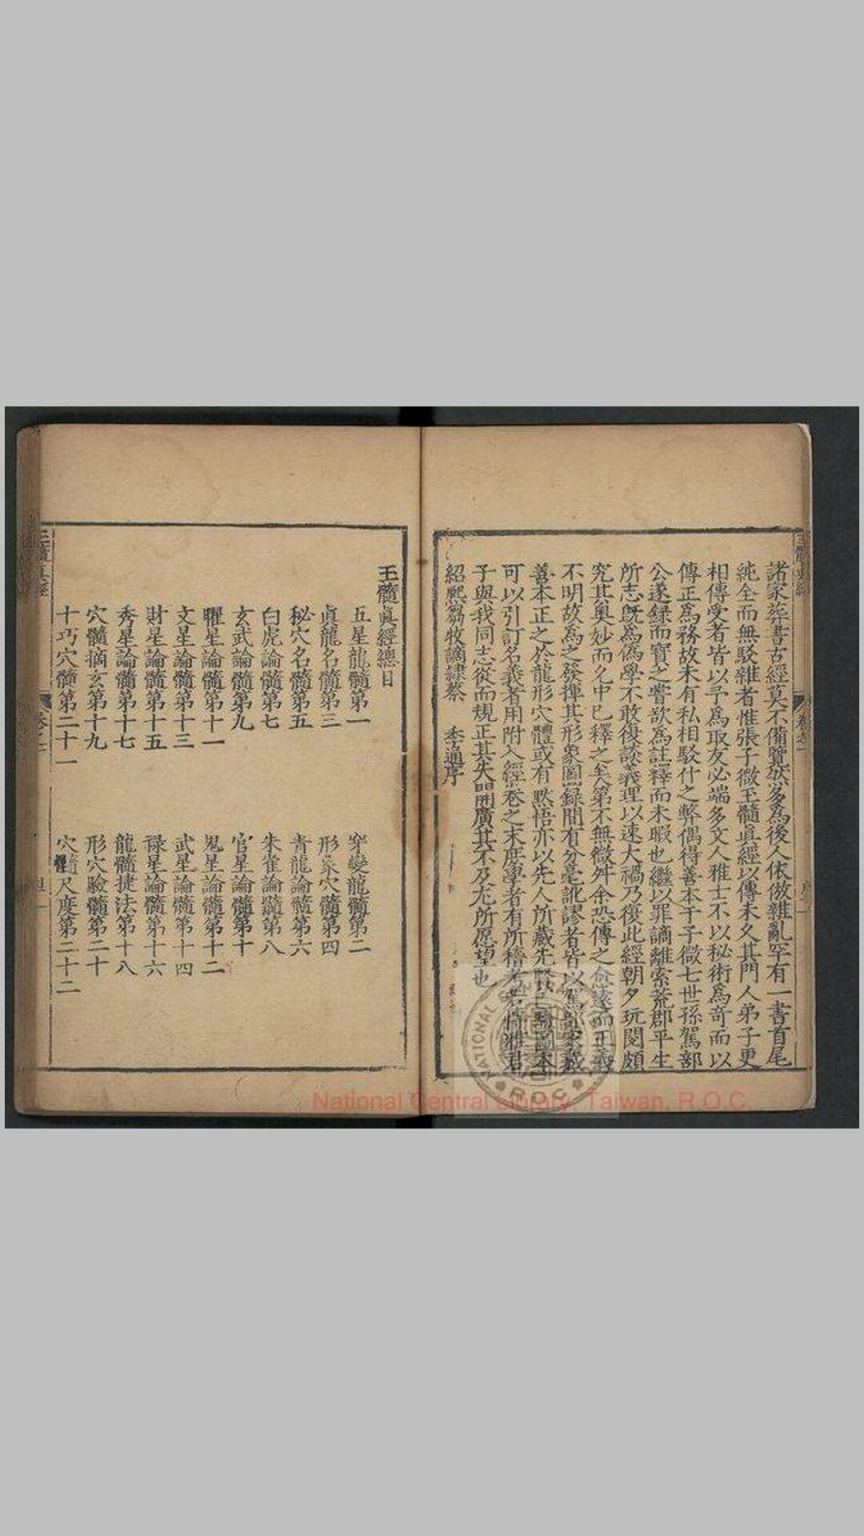 諸家葬書古經莫不備覽族多爲後人依倣雜亂罕有一書首尾
純全而無駁雜者惟張子微玉髓眞經以傳未久其門人弟子更
相傳受者皆以予爲取友必端多文人雅士不以秘術爲奇而以
傳正爲務故未有私相駁什之弊偶得善本于子微七世孫駕部
公遂録而寶之嘗欲爲註釋而未暇也繼以罪謫離索荒郡平生
所志旣爲偽學不敢復談義理以速大禍乃復此經朝夕玩閱頗
究其奥妙而久中已釋之矣第不無微舛余恐傳之愈遠而正義
不明故爲之發揮其形象圖録間有分毫訛謬者皆以駕部家藏
善本正之於龍形穴體或有黙悟亦以先人所藏先賢圖本
可以引訂名義者用附入經卷之末庶學者有所稽考君
子與我同志從而規正其失開廣其不及尤所愿望也
紹熙芻牧謫隷蔡 季通序
玉髓眞經總目
五星龍髓第一 穿變龍髓第二
眞龍名髓第三 形象穴髓第四
秘穴名髓第五 青龍論髓第六
白虎論髓第七 朱雀論髓第八
玄武論髓第九 官星論髓第十
曜星論髓第十一 鬼星論髓第十二
文星論髓第十三 武星論髓第十四
財星論髓第十五 禄星論髓第十六
秀星論髓第十七 龍髓捷法第十八
穴髓摘玄第十九 形穴驗髓第二十
十巧穴髓第二十一 穴髓尺度第二十二
玉髓眞經
卷之一
National Central Library, Taiwan, R.O.C.